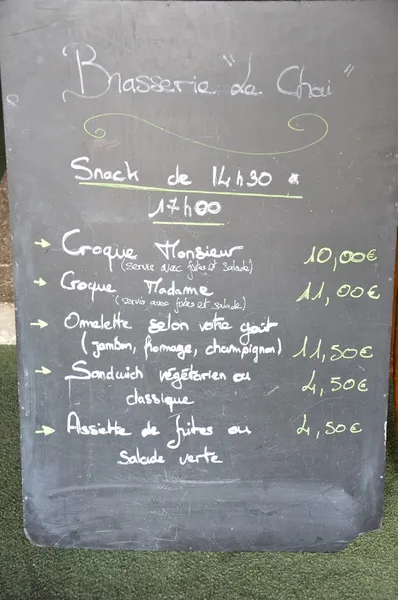 Brasserie "Le Chai"
Snack de 14h30 à
17h00
→ Croque Monsieur 10,00€
(servis avec frites et salade)
→ Croque Madame 11,00€
(servis avec frites et salade)
→ Omelette selon votre goût
(jambon, fromage, champignon) 11,50€
→ Sandwich végétarien ou 4,50€
classique
→ Assiette de frites ou 4,50€
Salade verte